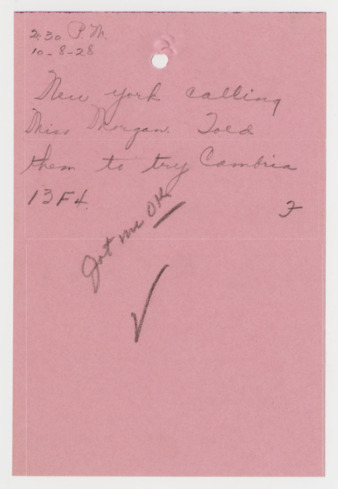 2:30 P.M.
10-8-28
New York calling
Miss Morgan. Told
them to try Cambria
13F4.
Got me OK